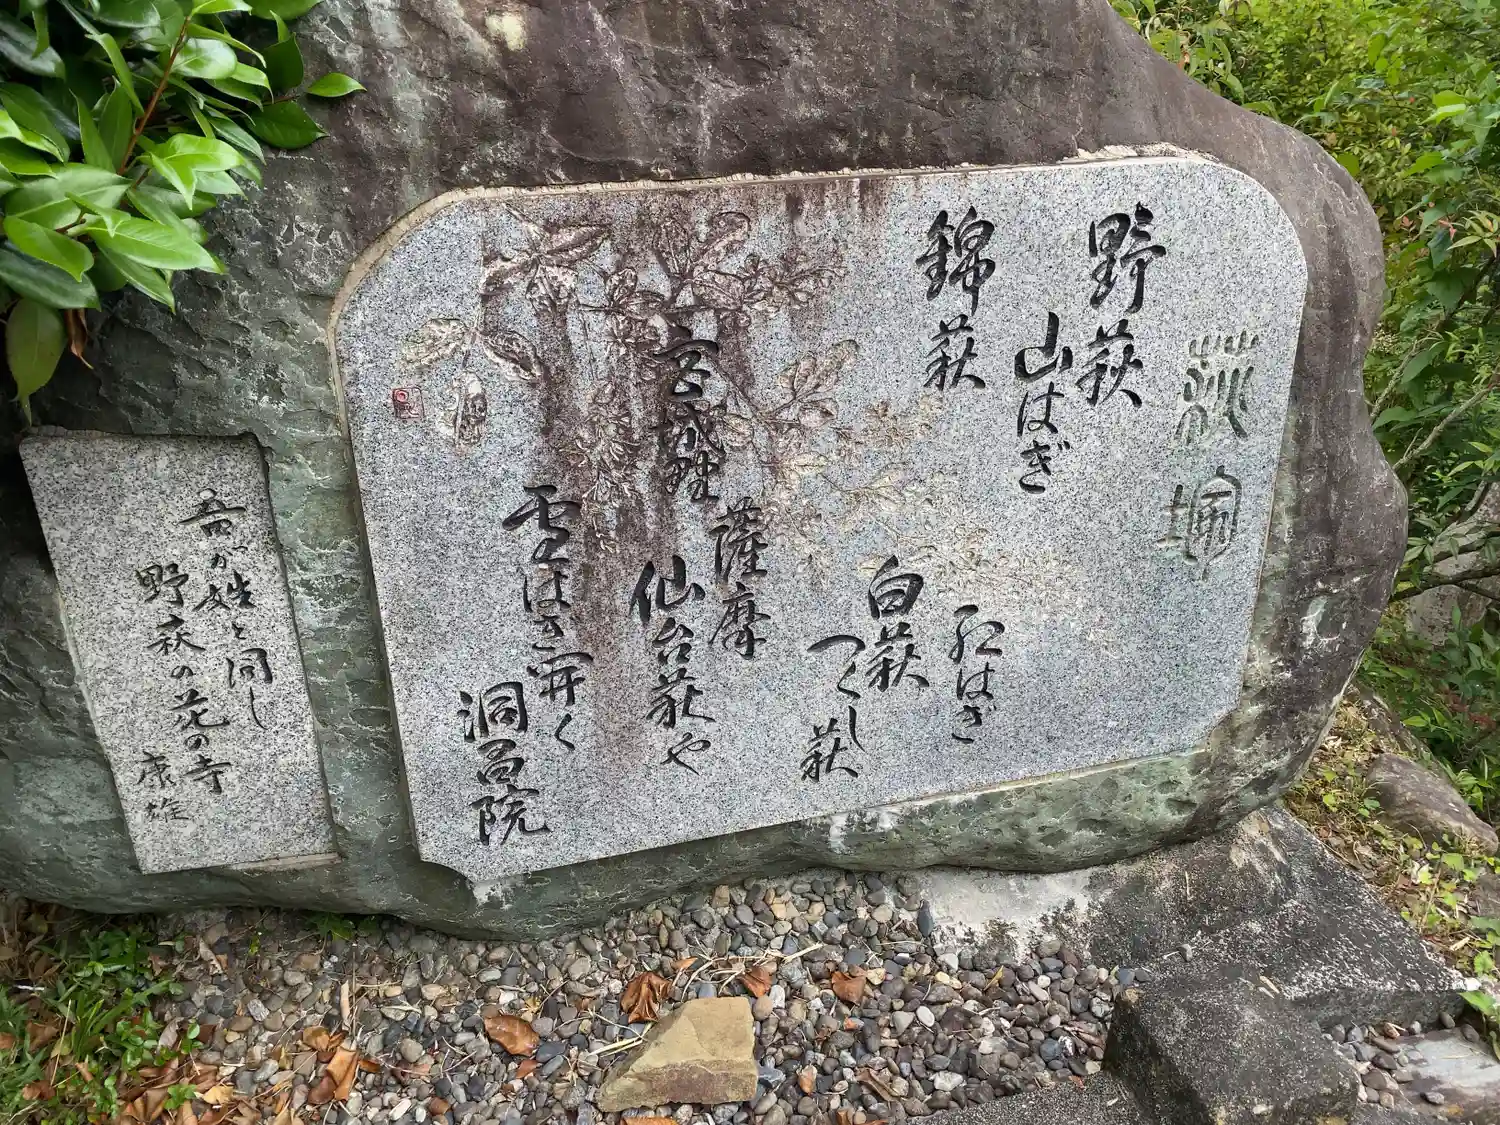 萩塚
野萩
山はぎ
錦萩
紅はぎ
白萩
つくし萩
宮城野
薩摩
仙台萩や
雪はぎ開く
洞昌院
吾が姓と同し
野萩の花の寺
康雄